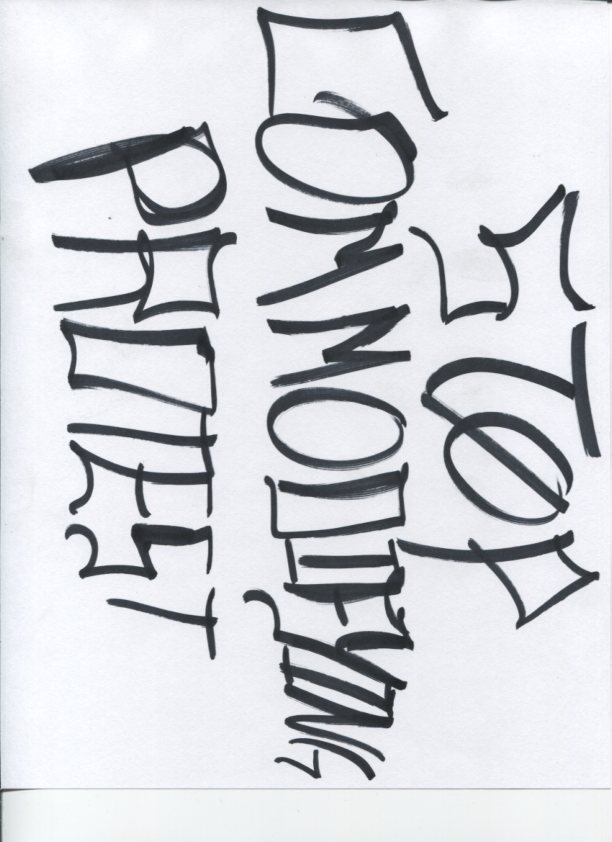 STOP
COMMODIFYING
PROTEST